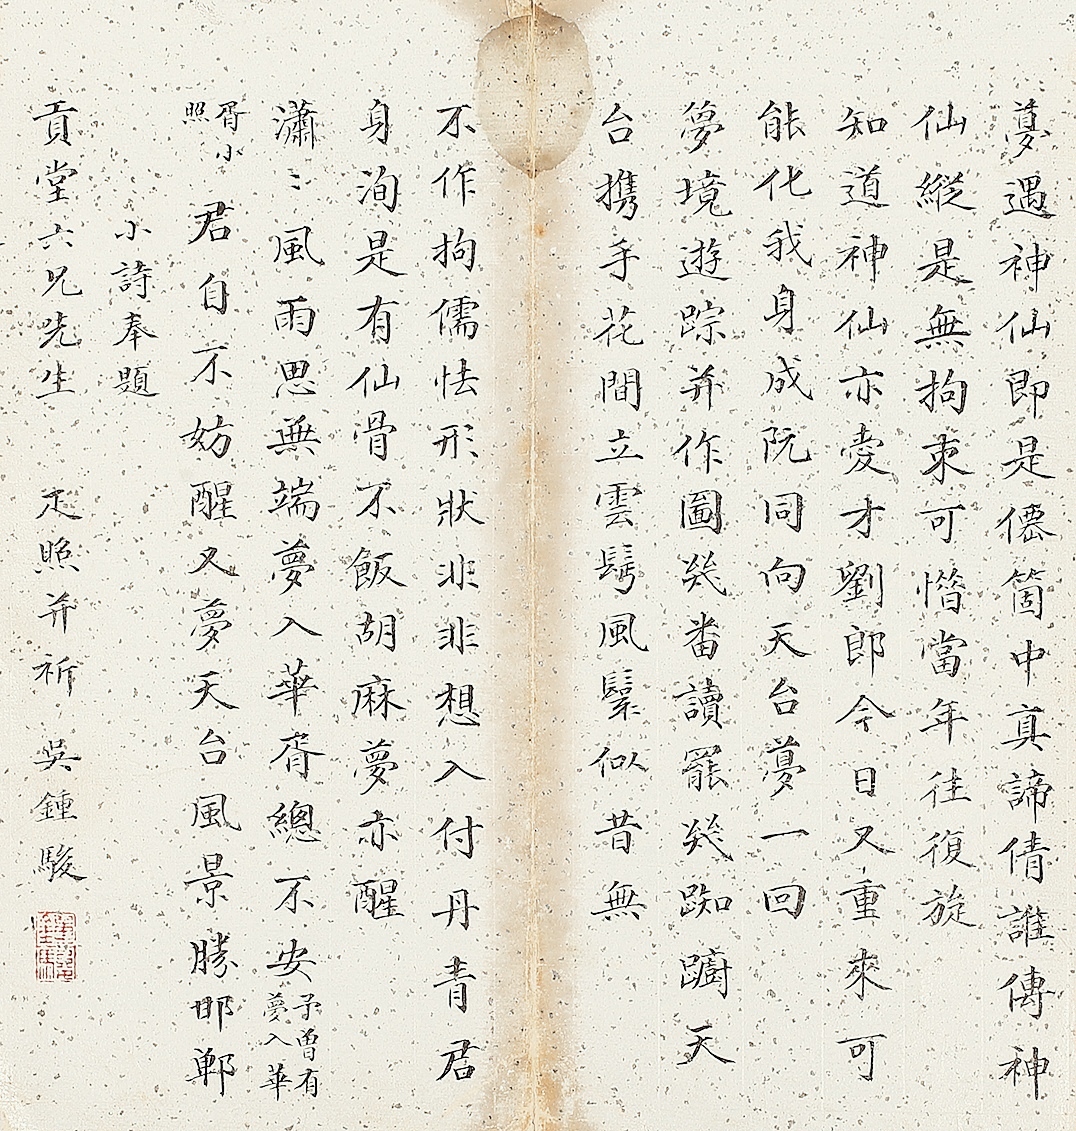 夢遇神仙即是僊箇中真諦倩誰傳神
仙縱是無拘束可惜當年往復旋
知道神仙亦愛才劉郎今日又重來可
能化我身成阮同向天台夢一回
夢境遊踪并作圖幾番讀罷幾踟躕天
台携手花間立雲鬟風鬟似昔無
不作拘儒怯形狀非非想入付丹青君
身洵是有仙骨不飯胡麻夢亦醒
瀟〻風雨思無端夢入華胥總不安予曾有夢入華
胥小照君自不妨醒又夢天台風景勝邯鄲
小詩奉題
貢堂六兄先生 疋照并祈 吳鍾駿